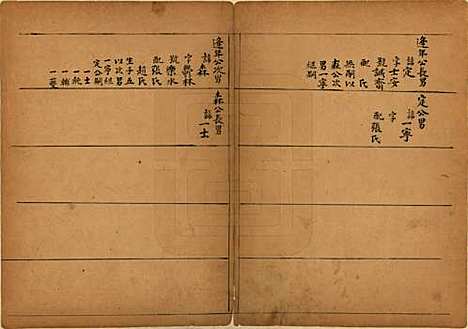 逢年公長男
諱定
字士安
號誠齋
配 氏
無嗣以
森公次
男一寧
組嗣
定公男
諱一寧
字
配張氏
逢年公次男
諱森
字 林
號樂水
配張氏
趙氏
生子五
以次男
一寧組
定公嗣
一士
一
一楠
一
森公長男
諱一士